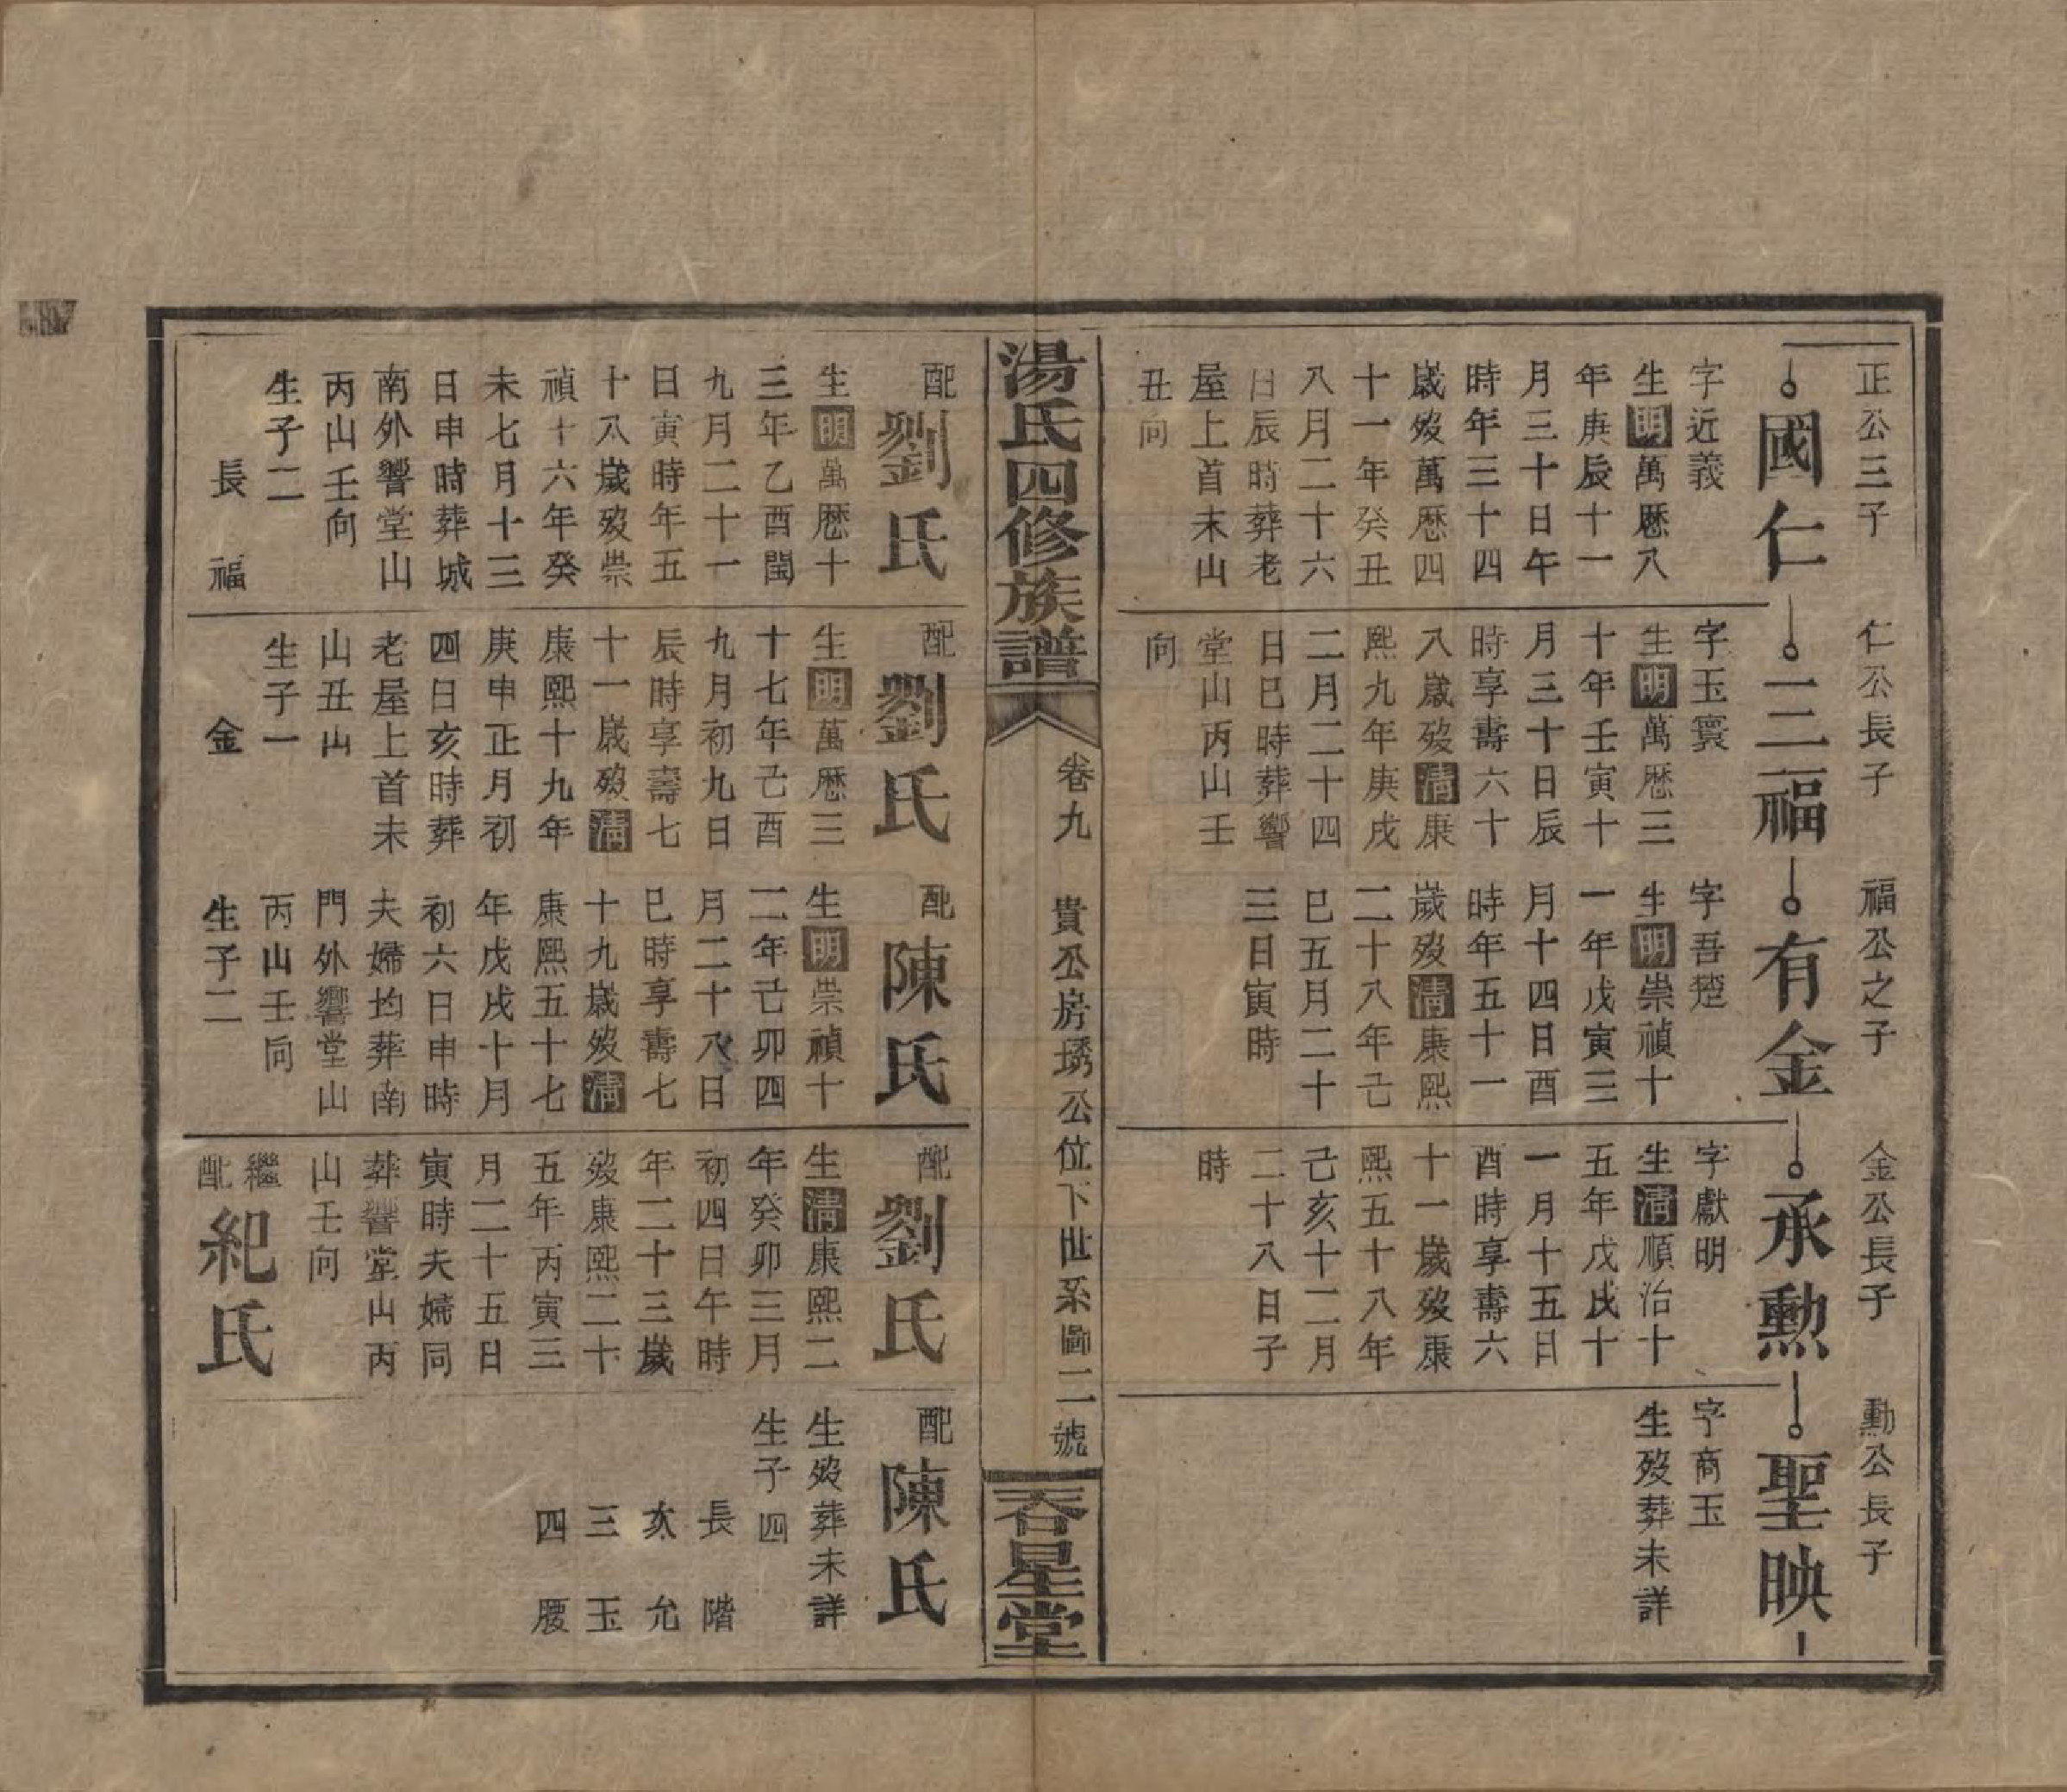 正公三子
國仁
字近義
生明萬曆八
年庚辰十一
月三十日午
時年三十四
歲歿萬曆四
十一年癸丑
八月二十六
日辰時葬老
屋上首未山
丑向
仁公長子
三福
字玉寰
生明萬曆三
十年壬寅十
月三十日辰
時享壽六十
八歲歿清康
熙九年庚戌
二月二十四
日巳時葬響
堂山丙山壬
向
福公之子
有金
字吾楚
生明崇禎十
一年戊寅三
月十四日酉
時年五十一
歲歿清康熙
二十八年己
巳五月二十
三日寅時
金公長子
承勲
字獻明
生清順治十
五年戊戌十
一月十五日
酉時享壽六
十一歲歿康
熙五十八年
己亥十二月
二十八日子
時
勳公長子
聖映
字商玉
生歿葬未詳
湯氏四修族譜
卷九
貴公房琇公位下世系圖二號
吞星堂
配劉氏
生明萬曆十
三年乙酉閏
九月二十一
日寅時年五
十八歲歿崇
禎十六年癸
未七月十三
日申時葬城
南外響堂山
丙山壬向
生子二
長福
配劉氏
生明萬曆三
十七年己酉
九月初九日
辰時享壽七
十一歲歿清
康熙十九年
庚申正月初
四日亥時葬
老屋上首未
山丑山
生子一
金
配陳氏
生明崇禎十
二年己卯四
月二十八日
巳時享壽七
十九歲歿清
康熙五十七
年戊戌十月
初六日申時
夫婦均葬南
門外響堂山
丙山壬向
生子二
配劉氏
生清康熙二
年癸卯三月
初四日午時
年二十三歲
歿康熙二十
五年丙寅三
月二十五日
寅時夫婦同
葬響堂山丙
山壬向
繼配紀氏
配陳氏
生歿葬未詳
生子四
長階
次允
三玉
四